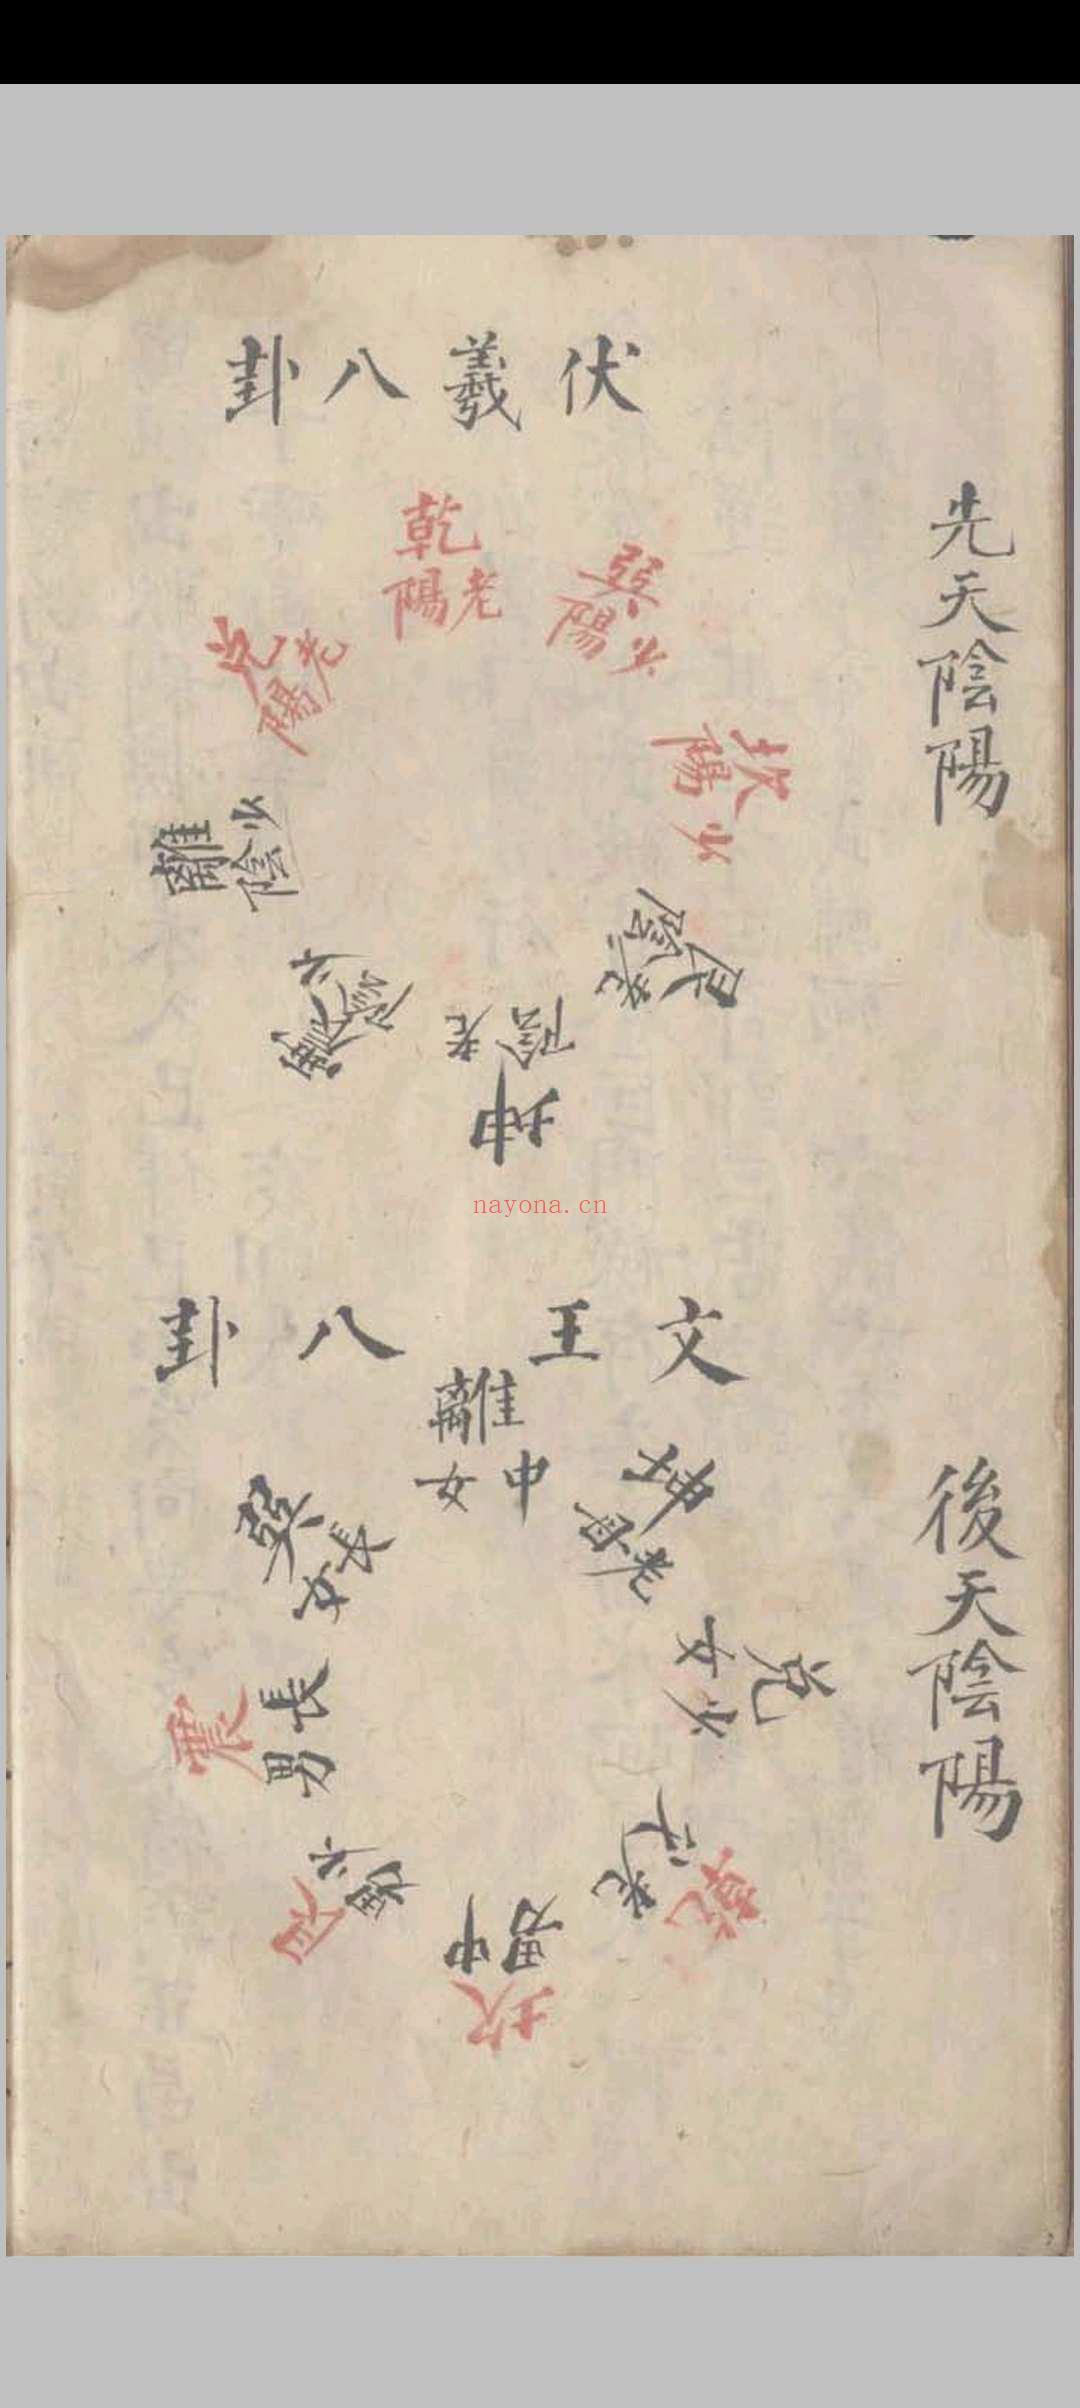 先天陰陽
伏羲八卦
乾老陽
巽少陽
坎少陽
艮老陰
坤老陰
震少陰
離少陰
兌老陽
nayona.cn
後天陰陽
文王八卦
離中女
坤老母
兌少女
乾老
坎中男
艮少男
震長男
巽長女